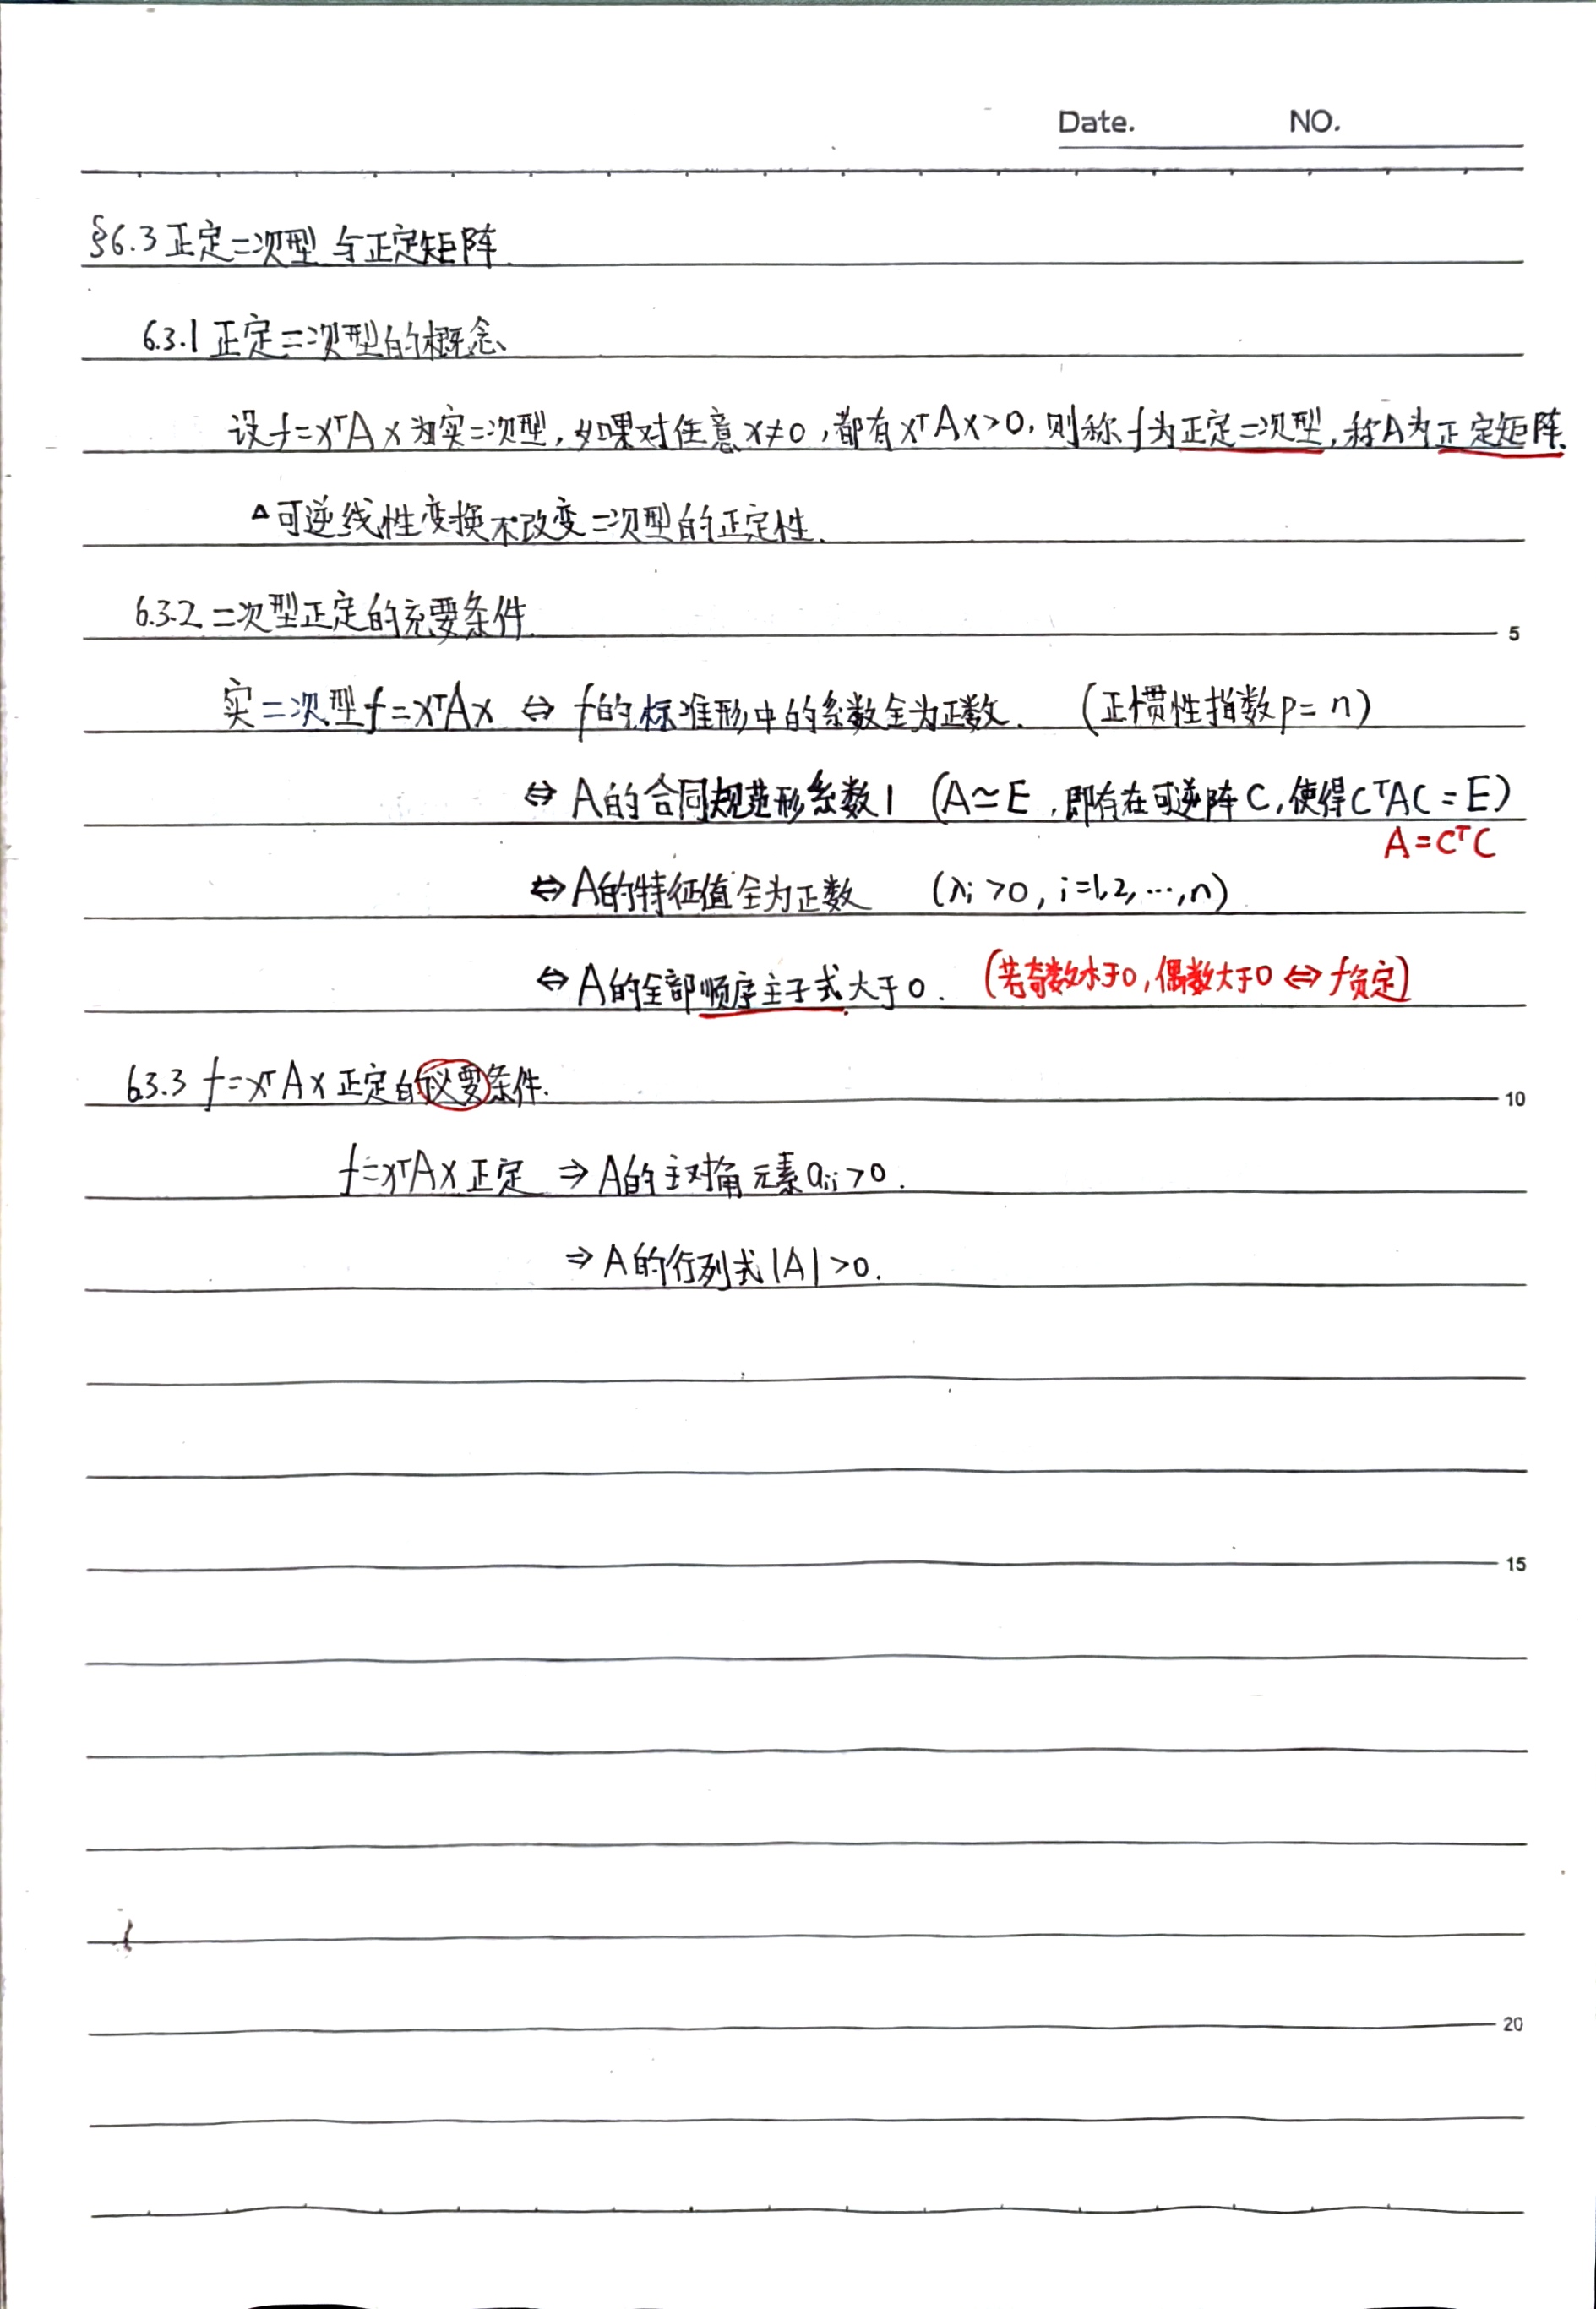 Date. NO.
§6.3 正定二次型与正定矩阵.
6.3.1 正定二次型的概念
设f=xᵀAx为实二次型,如果对任意x≠0,都有xᵀAx>0,则称f为正定二次型,称A为正定矩阵.
△可逆线性变换不改变二次型的正定性.
6.3.2 二次型正定的充要条件
5
实二次型f=xᵀAx ⇔ f的标准形中的系数全为正数. (正惯性指数p=n)
⇔ A的合同规范形系数1 (A≃E,即有在可逆阵C,使得CᵀAC=E)
A=CᵀC
⇔ A的特征值全为正数 (λi>0, i=1,2,…,n)
⇔ A的全部顺序主子式大于0. (若奇数小于0,偶数大于0 ⇔ f负定)
6.3.3 f=xᵀAx正定的必要条件.
10
f=xᵀAx正定 ⇒ A的主对角元素aii>0.
⇒ A的行列式|A|>0.
15
20